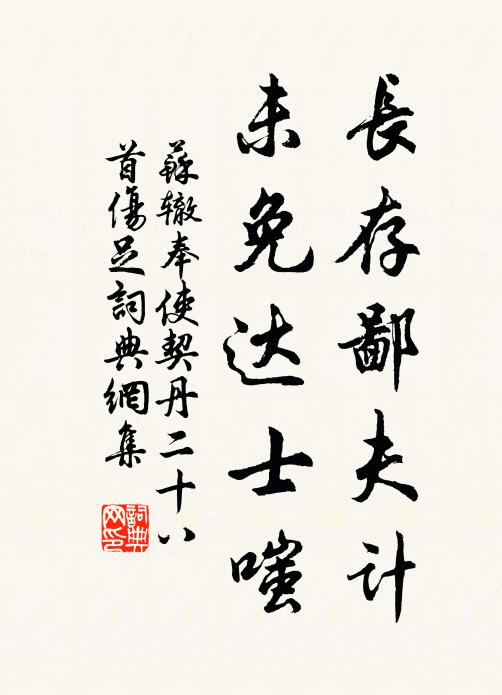 長存鄙夫计
未免达士嗤
蘇辙奉使契丹二十八
首傷足詞典網集
詞典网印